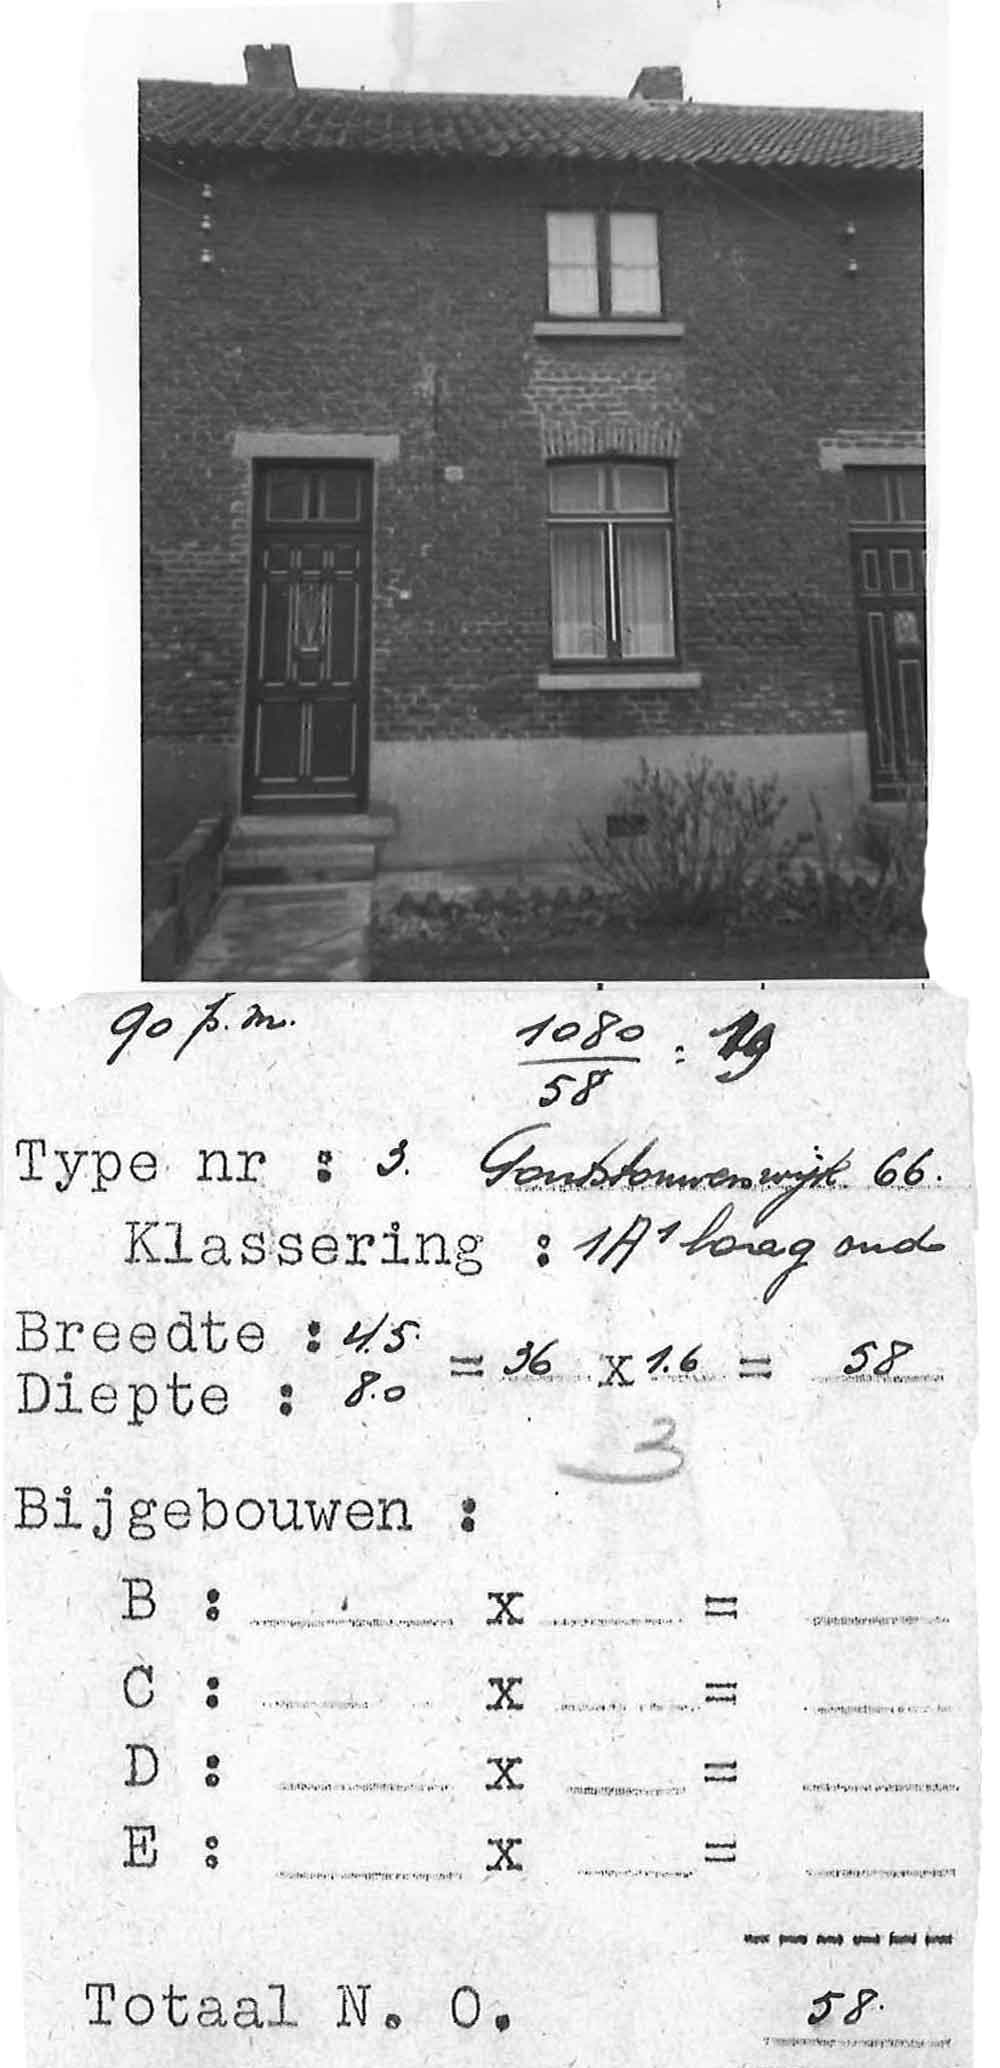 90 p.m.
1080
58 : 19
Type nr : 3. 66.
Klassering : 1A¹ laag oud
Breedte : 4.5
Diepte : 8.0
= 36 x 1.6 = 58
3
Bijgebouwen :
B : x =
C : x =
D : x =
E : x =
Totaal N. O. 58.